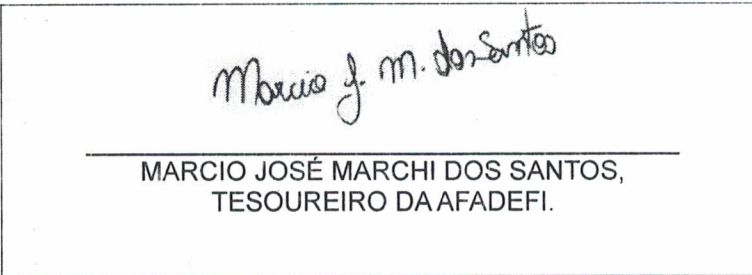 Marcio J. M. dos Santos
MARCIO JOSÉ MARCHI DOS SANTOS,
TESOUREIRO DA AFADEFI.